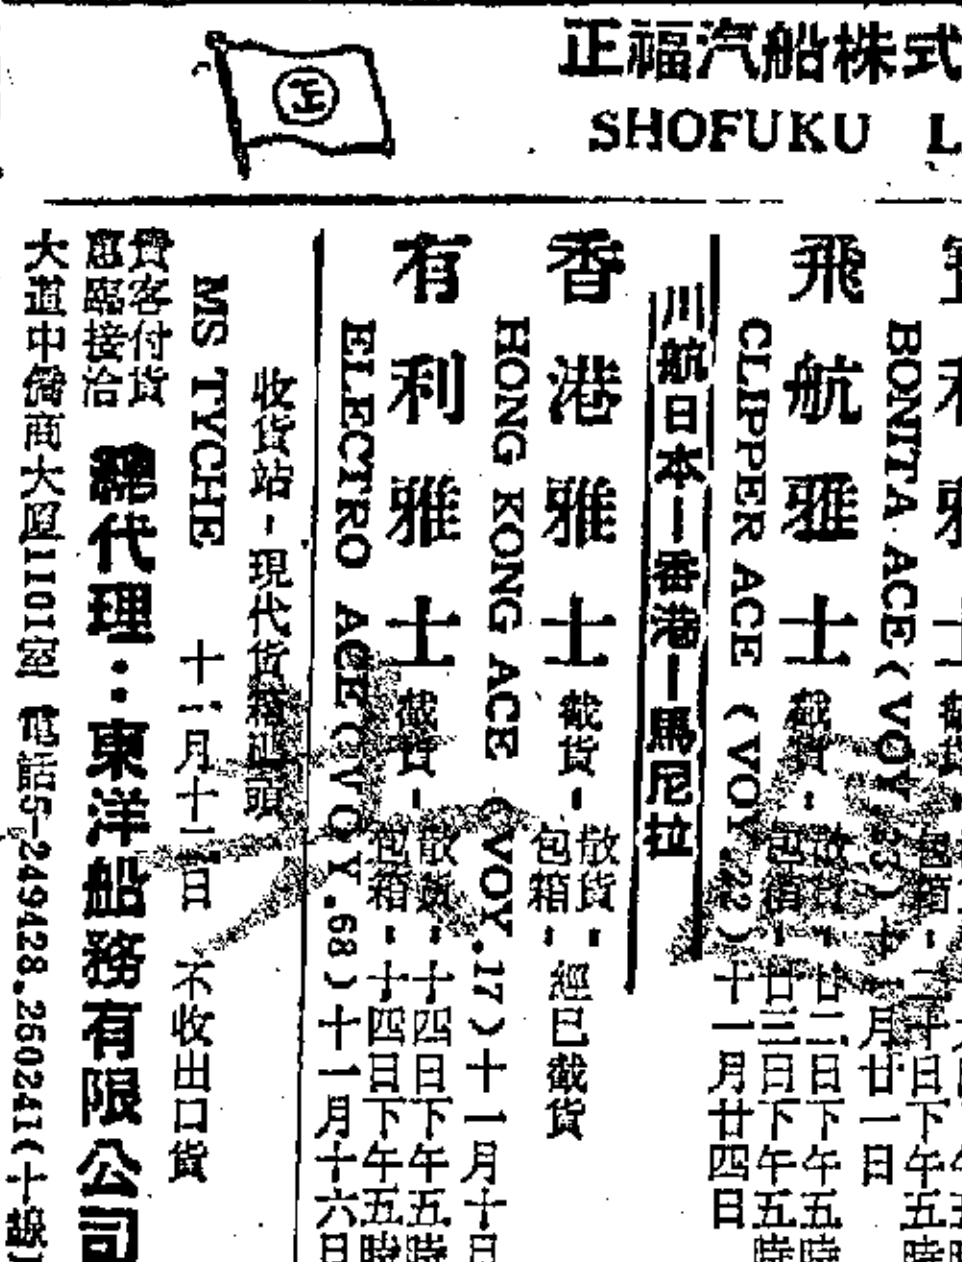 正福汽船株式
SHOFUKU L
正
利雅
BONITA ACE(VOY.33)十一月廿一日
飛航雅士
截貨:散貨·廿二日下午五時
包箱·廿三日下午五時
CLIPPER ACE (VOY.22)十一月廿四日
川航日本—香港—馬尼拉
香港雅士
截貨·散貨·經已截貨
包箱·
HONG KONG ACE (VOY.17)十一月十日
有利雅士
截貨·散貨:十四日下午五時
包箱·十四日下午五時
ELECTRO ACE(VOY.68)十一月十六日
收貨站·現代貨箱碼頭
MS TYCHE 十一月十一日 不收出口貨
貴客付貨
惠臨接洽
總代理:東洋船務有限公司
大道中僑商大厦1101室 電話5-249428.250241(十線)